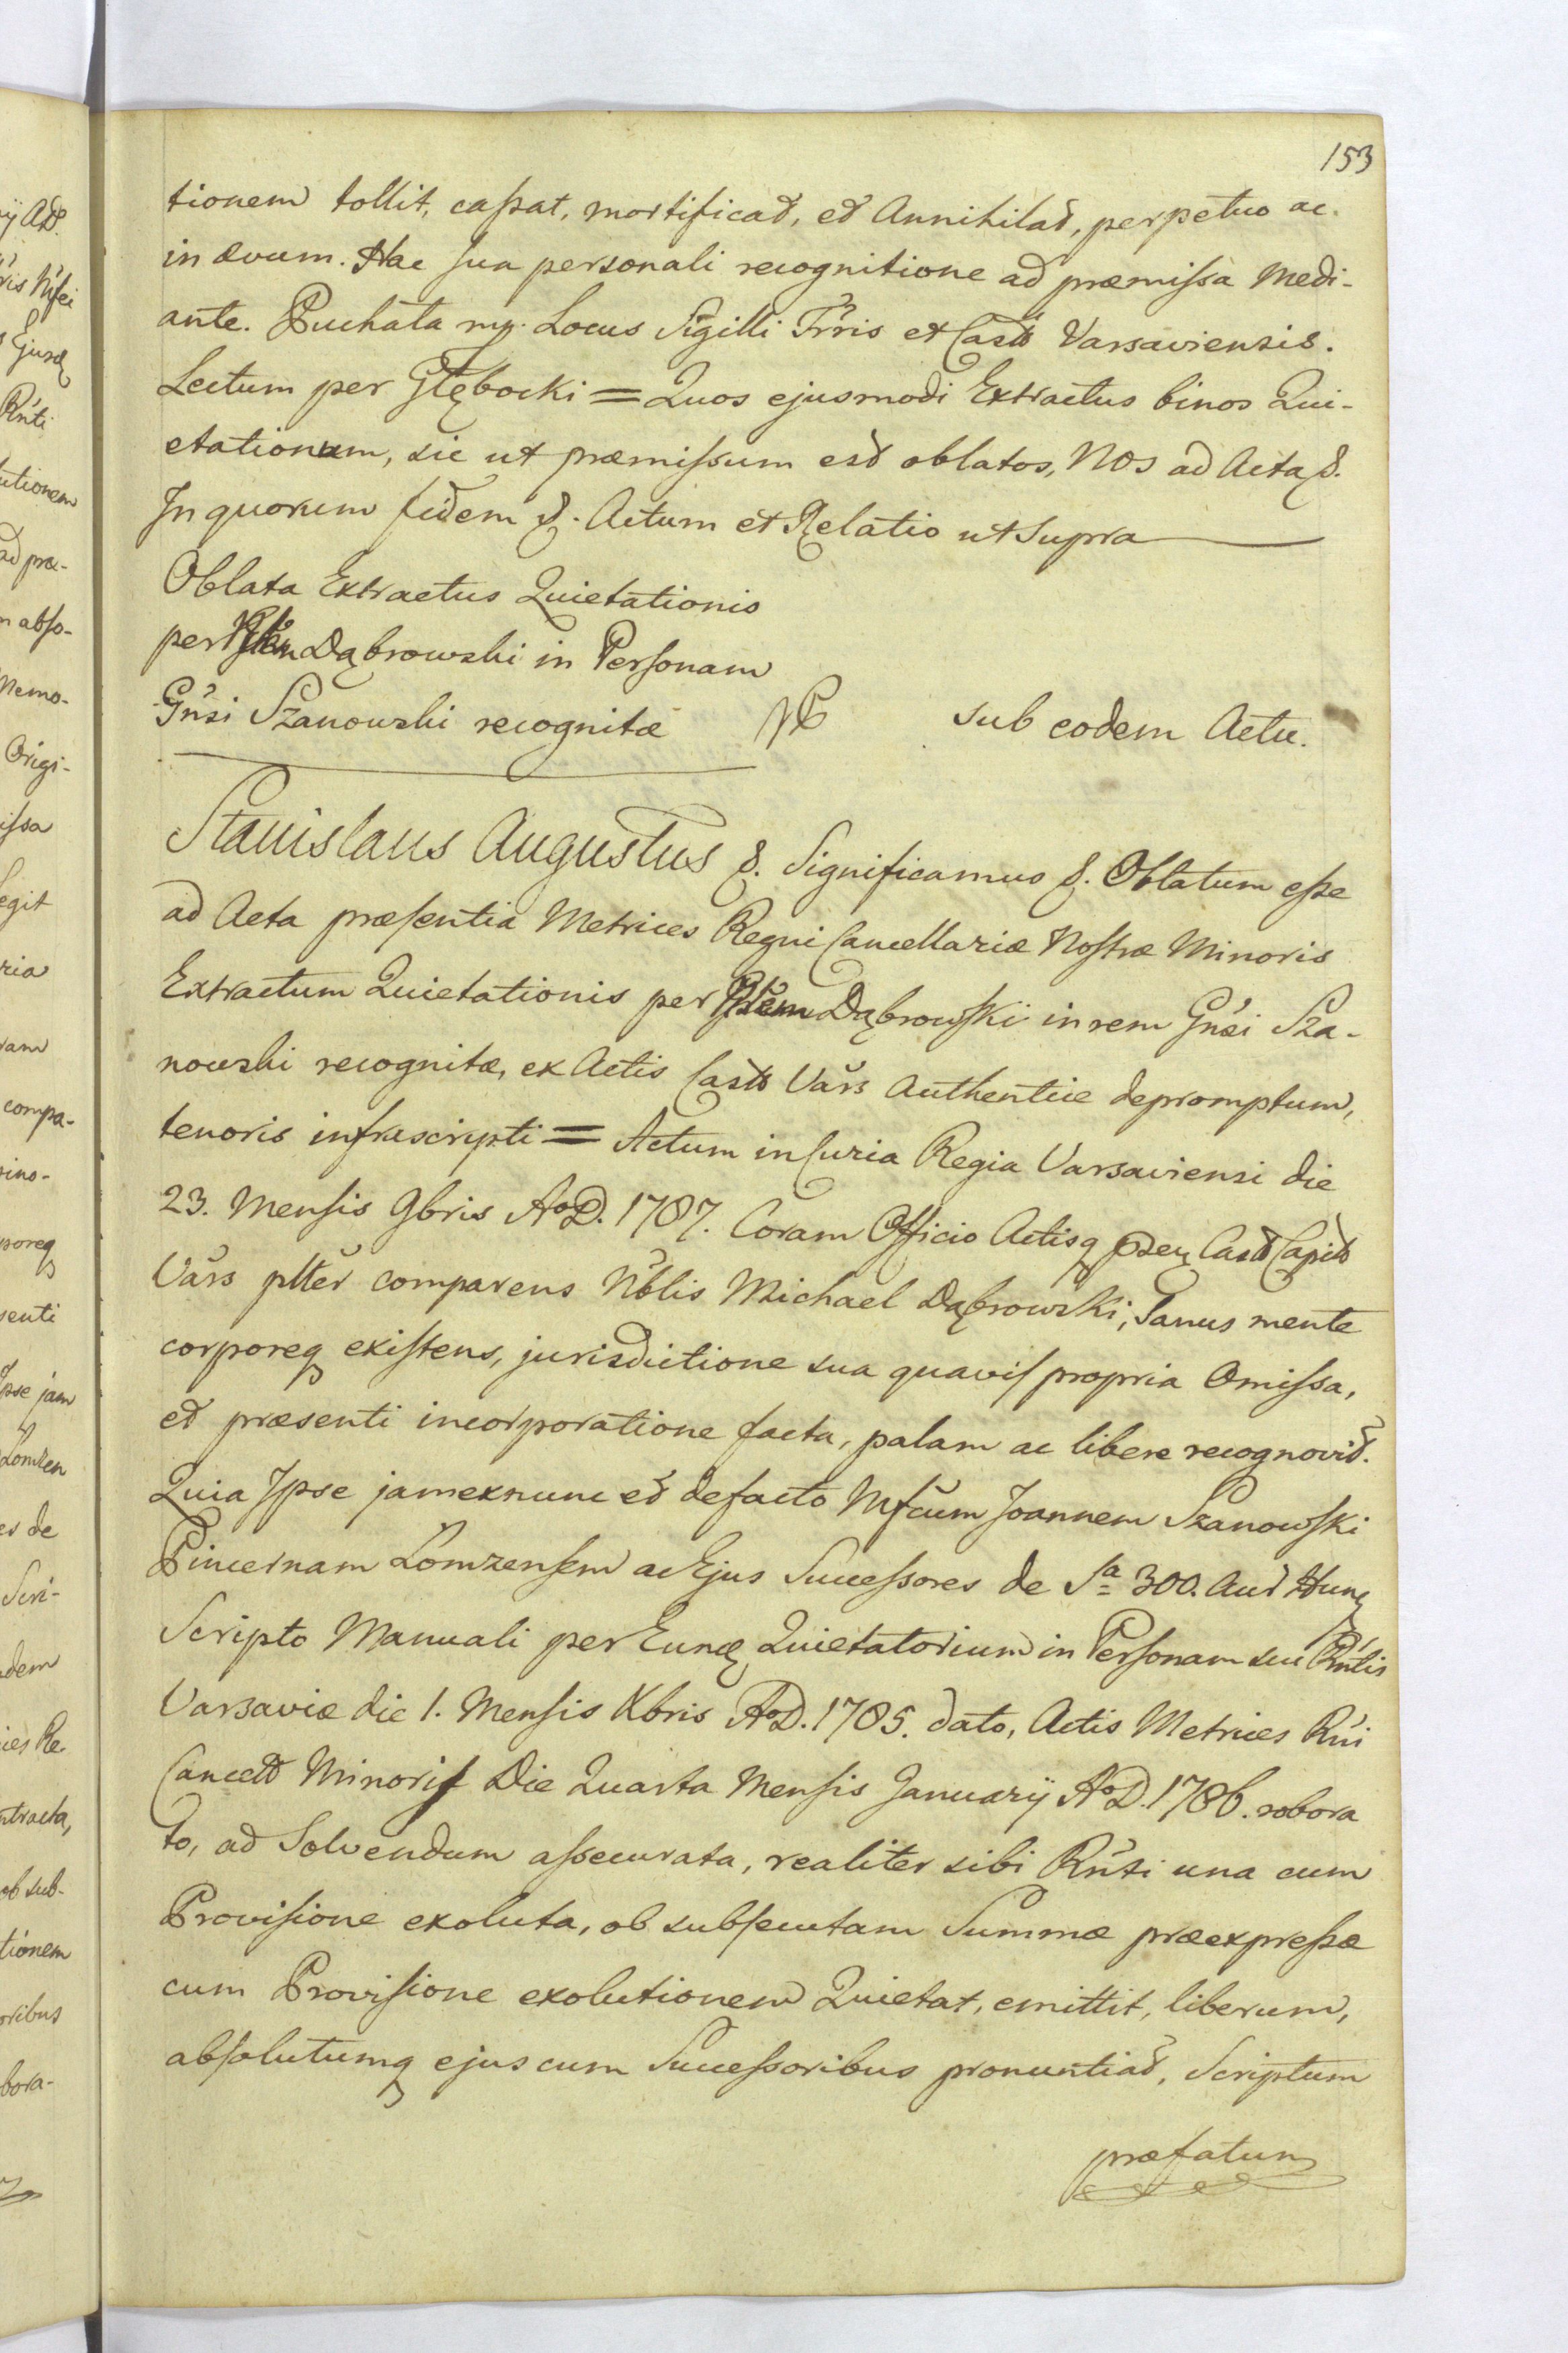 153
tionem tollit, cassat, mortificat, et Annihilat, perpetuo ac
in ævum. Hac sua personali recognitione ad præmissa Medi-
ante. Puchata mp. Locus Sigilli Trris et Castr Varsaviensis.
Lectum per Głębocki = Quos ejusmodi Extractus binos Qui-
etationum, sic ut præmissum est oblatos, Nos ad Acta &.
In quorum fidem &. Actum et Relatio ut supra
Oblata Extractus Quietationis
per Dąbrowski in Personam
Gnsi Szanowski recognitæ sub eodem Actu.
Stanislaus Augustus &. Significamus &. Oblatum esse
ad Acta præsentia Metrices Regni Cancellariæ Nostræ Minoris
Extractum Quietationis per Dąbrowski in rem Gnsi Sza-
nowski recognitæ, ex Actis Castr Vars Authentice depromptum,
tenoris infrascripti = Actum in Curia Regia Varsaviensi die
23. Mensis 9bris AoD. 1787. Coram Officio Actisq Castr Capit
Vars plter comparens Nblis Michael Dąbrowski, Sanus mente
corporeq existens, jurisdictione sua quavis propria Omissa,
et præsenti incorporatione facta, palam ac libere recognovit.
Quia Ipse jam ex nunc et de facto Mfcum Joannem Szanowski
Pincernam Łomzensem ac Ejus Successores de Sa 300. Aur Hung
Scripto Manuali per Eund Quietatorium in Personam sui Rntis
Varsaviæ die 1. Mensis Xbris AoD. 1785. dato, Actis Metrices Rni
Cancell Minoris Die Quarta Mensis Januarij AoD. 1786. robora
to, ad Solvendum assecurata, realiter sibi Rnti una cum
Provisione exoluta, ob subsecutam Summæ præexpressæ
cum Provisione exolutionem Quietat, emittit, liberum,
absolutumq ejus cum Successoribus pronuntiat, Scriptum
præfatum